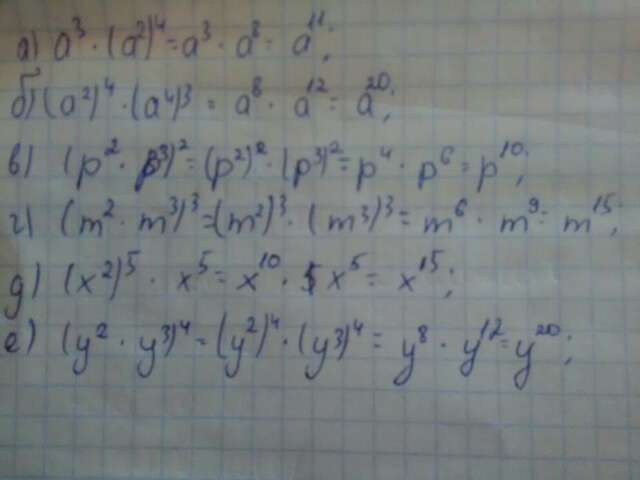 а) a³ · (a²)⁴ = a³ · a⁸ = a¹¹;
б) (a²)⁴ · (a⁴)³ = a⁸ · a¹² = a²⁰;
в) (p² · p³)² = (p²)² · (p³)² = p⁴ · p⁶ = p¹⁰;
г) (m² · m³)³ = (m²)³ · (m³)³ = m⁶ · m⁹ = m¹⁵;
д) (x²)⁵ · x⁵ = x¹⁰ · x⁵ = x¹⁵;
е) (y² · y³)⁴ = (y²)⁴ · (y³)⁴ = y⁸ · y¹² = y²⁰;